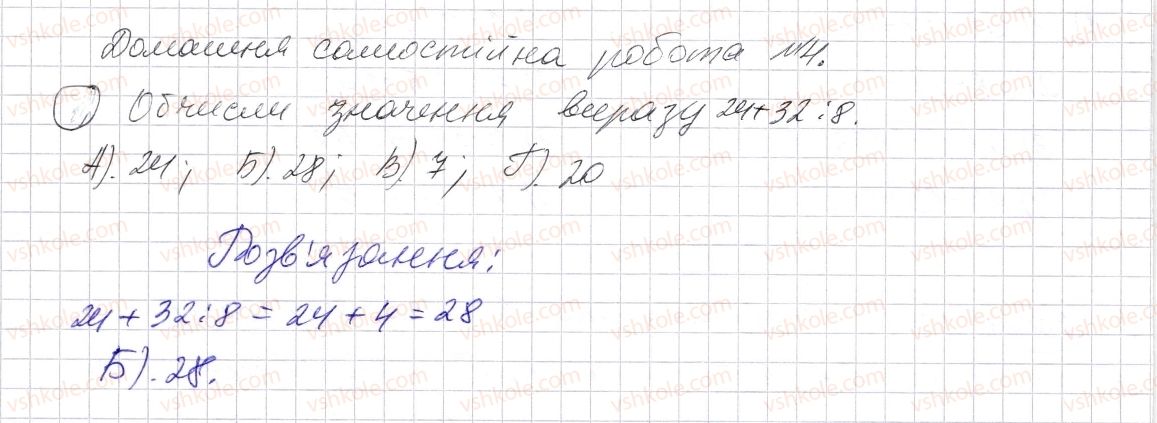 Домашня самостійна робота №4.
1) Обчисли значення виразу 24+32:8.
А). 24; Б). 28; В). 7; Г). 20
Розв'язання:
24 + 32:8 = 24 + 4 = 28
Б). 28.